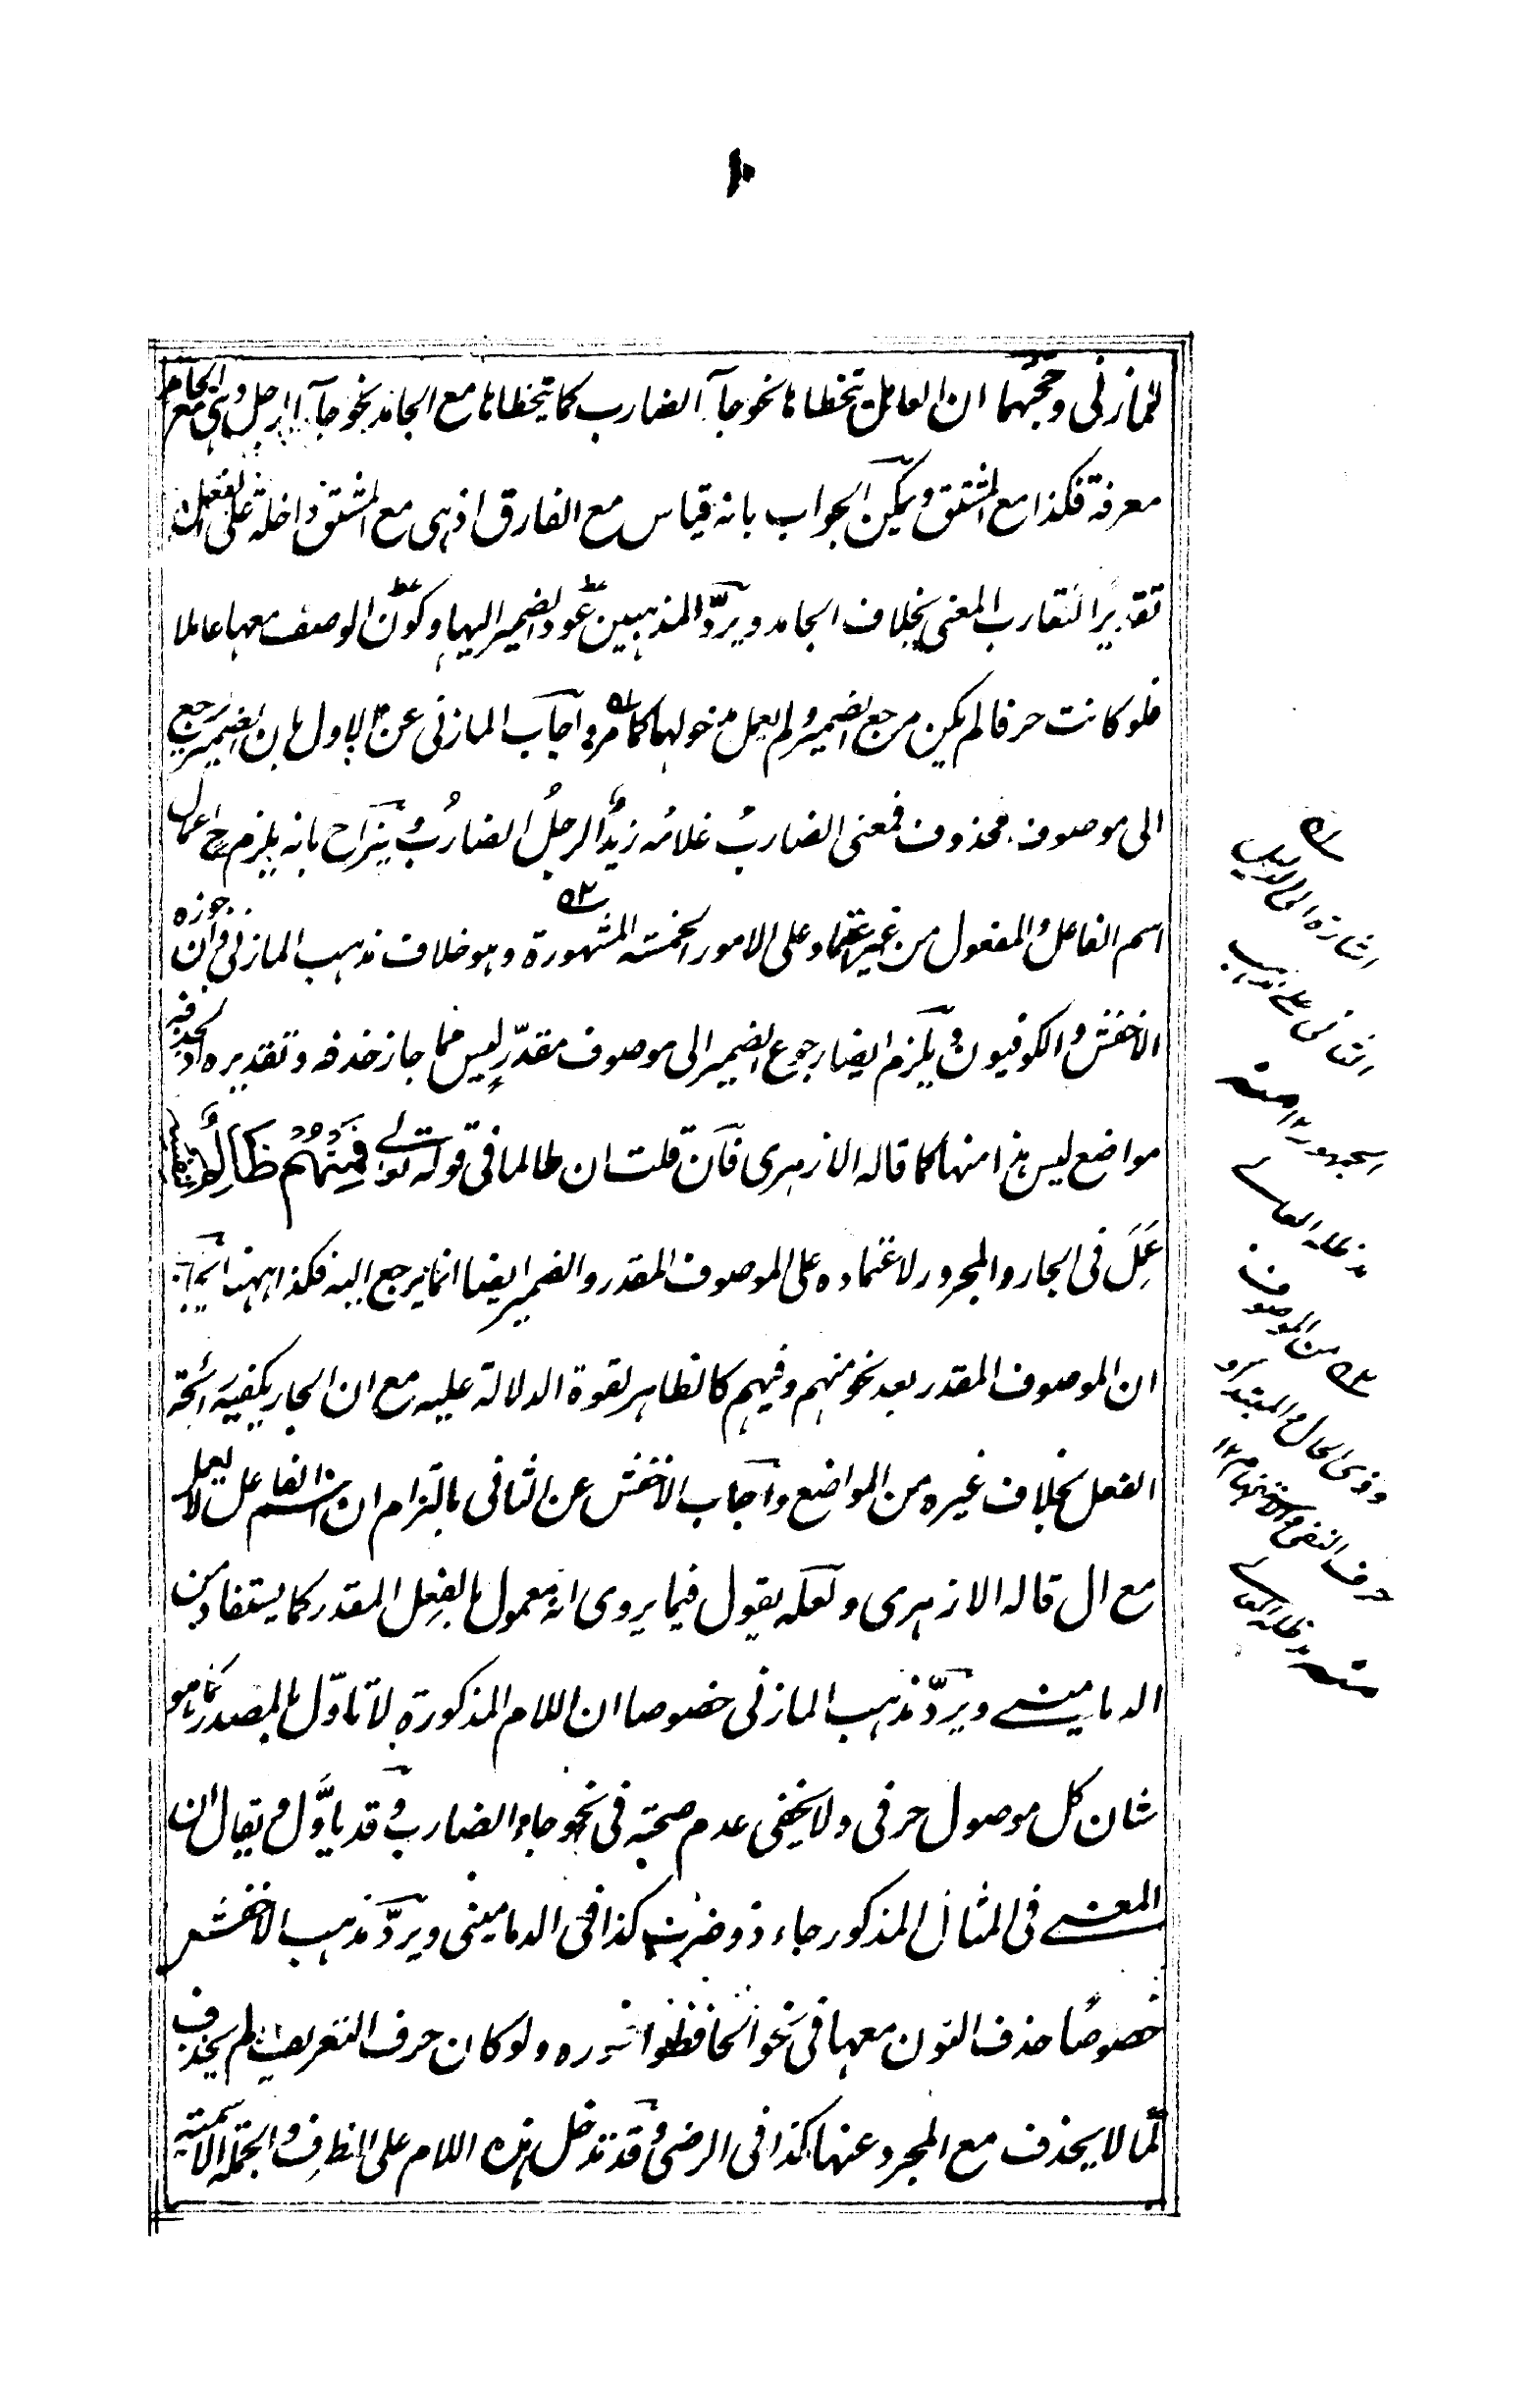 ١٠
للمازنى وحجتهما ان العامل يتخطاها نحو جاء الضارب كما يتخطاها مع الجامد نحو جاء الرجل وهى مع الجامد
معرفة فكذا مع المشتق ويمكن الجواب بانه قياس مع الفارق اذ هى مع المشتق داخلة على الفعل
تقديرا لتقارب المعنى بخلاف الجامد ويردّ المذهبين عود الضمير اليها وكون الوصف معها عاملا
فلو كانت حرفا لم يكن مرجع الضمير ولم يعمل مدخولها كما مر واجاب المازنى عن الاول بان الضمير يرجع
الى موصوف محذوف فمعنى الضاربُ غلامُه زيدٌ الرجلُ الضاربُ ويُزاح بانه يلزم ح اعمال
اسم الفاعل والمفعول من غير اعتماد على الامور الخمسة المشهورة وهو خلاف مذهب المازنى وان جوزه
الاخفش والكوفيون ويلزم ايضا رجوع الضمير الى موصوف مقدّر ليس مما جاز حذفه وتقديره اذ لحذفه
مواضع ليس هذا منها كما قاله الازهرى فان قلت ان ظالما فى قوله تعالى فَمِنْهُمْ ظَالِمٌ لِنَفْسِهِ
عَمِلَ فى الجار والمجرور لاعتماده على الموصوف المقدر والضمير ايضا انما يرجع اليه فكذا ههنا
ان الموصوف المقدر بعد نحو منهم وفيهم كالظاهر لقوة الدلالة عليه مع ان الجار يكفيه رائحة
الفعل بخلاف غيره من المواضع واجاب الاخفش عن الثانى بالتزام ان اسم الفاعل لا يعمل
مع ال قاله الازهرى ولعله يقول فيما يروى انه معمول بالفعل المقدر كما يستفاد من
الدمامينى ويردّ مذهب المازنى خصوصا ان اللام المذكورة لا تاوّل بالمصدر كما هو
شان كل موصول حرفى ولا يخفى عدم صحته فى نحو جاء الضارب وقد ياوَّل ويقال ان
المعنى فى المثال المذكور جاء ذو ضرب كذا فى الدمامينى ويردّ مذهب الاخفش
خصوصًا حذف النون معها فى نحو الحافظو عورة ولو كان حرف التعريف لم يحذف
كما لا يحذف مع المجرد عنها كذا فى الرضى وقد تدخل هذه اللام على الظرف والجملة الاسمية
اشارة الى الدليل
الثانى على مذهب
الجمهور ١٢ منه
مد ظله العالى
من الموصوف
وذى الحال والمبتدأ و
حرف النفى والاستفهام ١٢
منه مد ظله العالى